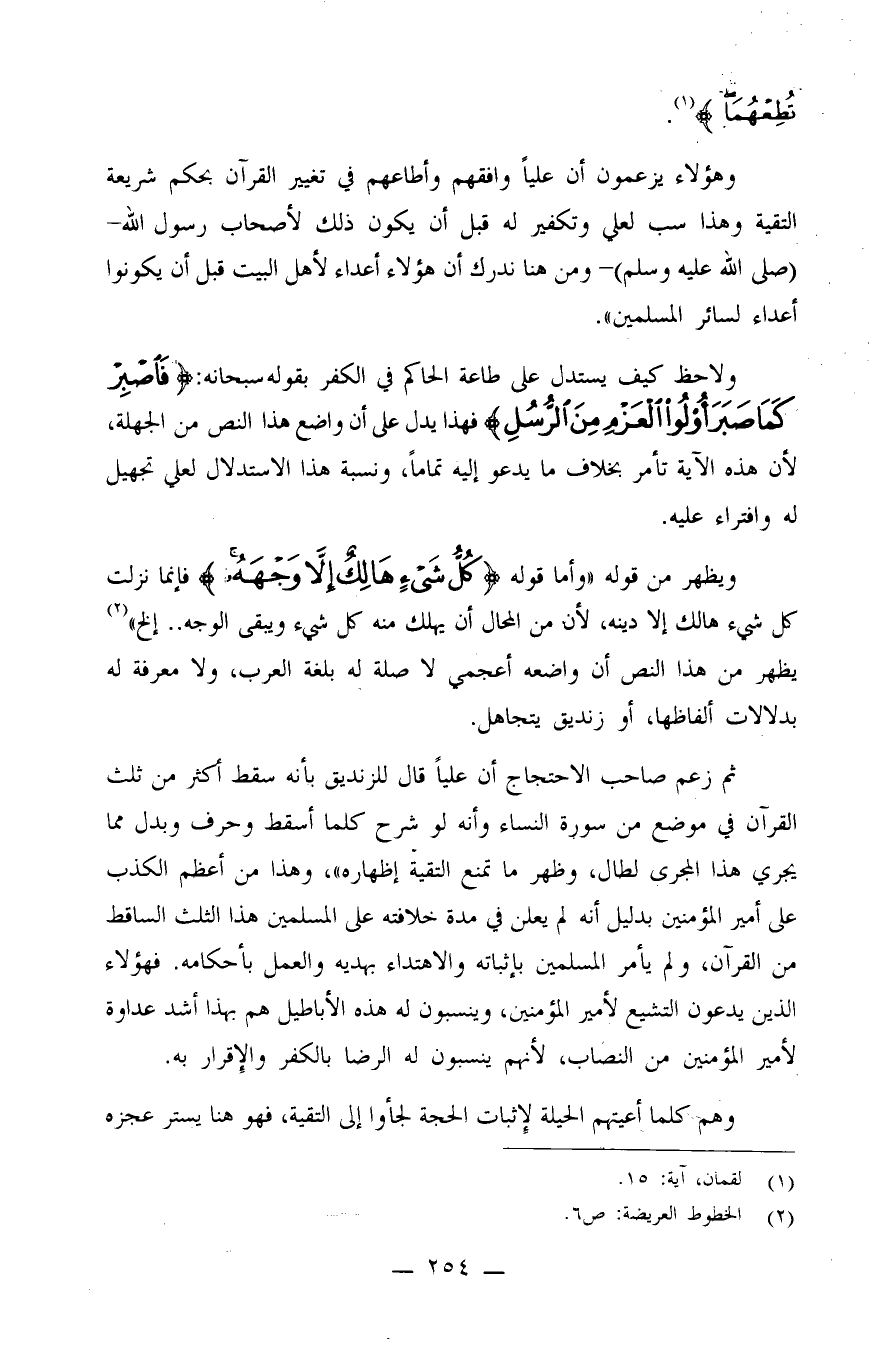 تُطِعْهُمَا ﴾(١).
وهؤلاء يزعمون أن علياً وافقهم وأطاعهم في تغيير القرآن بحكم شريعة
التقية وهذا سب لعلي وتكفير له قبل أن يكون ذلك لأصحاب رسول الله–
(صلى الله عليه وسلم)– ومن هنا ندرك أن هؤلاء أعداء لأهل البيت قبل أن يكونوا
أعداء لسائر المسلمين».
ولاحظ كيف يستدل على طاعة الحاكم في الكفر بقوله سبحانه: ﴿ فَٱصْبِرْ
كَمَا صَبَرَ أُوْلُواْ ٱلْعَزْمِ مِنَ ٱلرُّسُلِ ﴾ فهذا يدل على أن واضع هذا النص من الجهلة،
لأن هذه الآية تأمر بخلاف ما يدعو إليه تماماً، ونسبة هذا الاستدلال لعلي تجهيل
له وافتراء عليه.
ويظهر من قوله «وأما قوله ﴿ كُلُّ شَىْءٍ هَالِكٌ إِلَّا وَجْهَهُۥۚ ﴾ فإنما نزلت
كل شيء هالك إلا دينه، لأن من المحال أن يهلك منه كل شيء ويبقى الوجه.. إلخ»(٢)
يظهر من هذا النص أن واضعه أعجمي لا صلة له بلغة العرب، ولا معرفة له
بدلالات ألفاظها، أو زنديق يتجاهل.
ثم زعم صاحب الاحتجاج أن علياً قال للزنديق بأنه سقط أكثر من ثلث
القرآن في موضع من سورة النساء وأنه لو شرح كلما أسقط وحرف وبدل مما
يجري هذا المجرى لطال، وظهر ما تمنع التقية إظهاره»، وهذا من أعظم الكذب
على أمير المؤمنين بدليل أنه لم يعلن في مدة خلافته على المسلمين هذا الثلث الساقط
من القرآن، ولم يأمر المسلمين بإثباته والاهتداء بهديه والعمل بأحكامه. فهؤلاء
الذين يدعون التشيع لأمير المؤمنين، وينسبون له هذه الأباطيل هم بهذا أشد عداوة
لأمير المؤمنين من النصاب، لأنهم ينسبون له الرضا بالكفر والإقرار به.
وهم كلما أعيتهم الحيلة لإثبات الحجة لجأوا إلى التقية، فهو هنا يستر عجزه
(١) لقمان، آية: ١٥.
(٢) الخطوط العريضة: ص٦.
— ٢٥٤ —